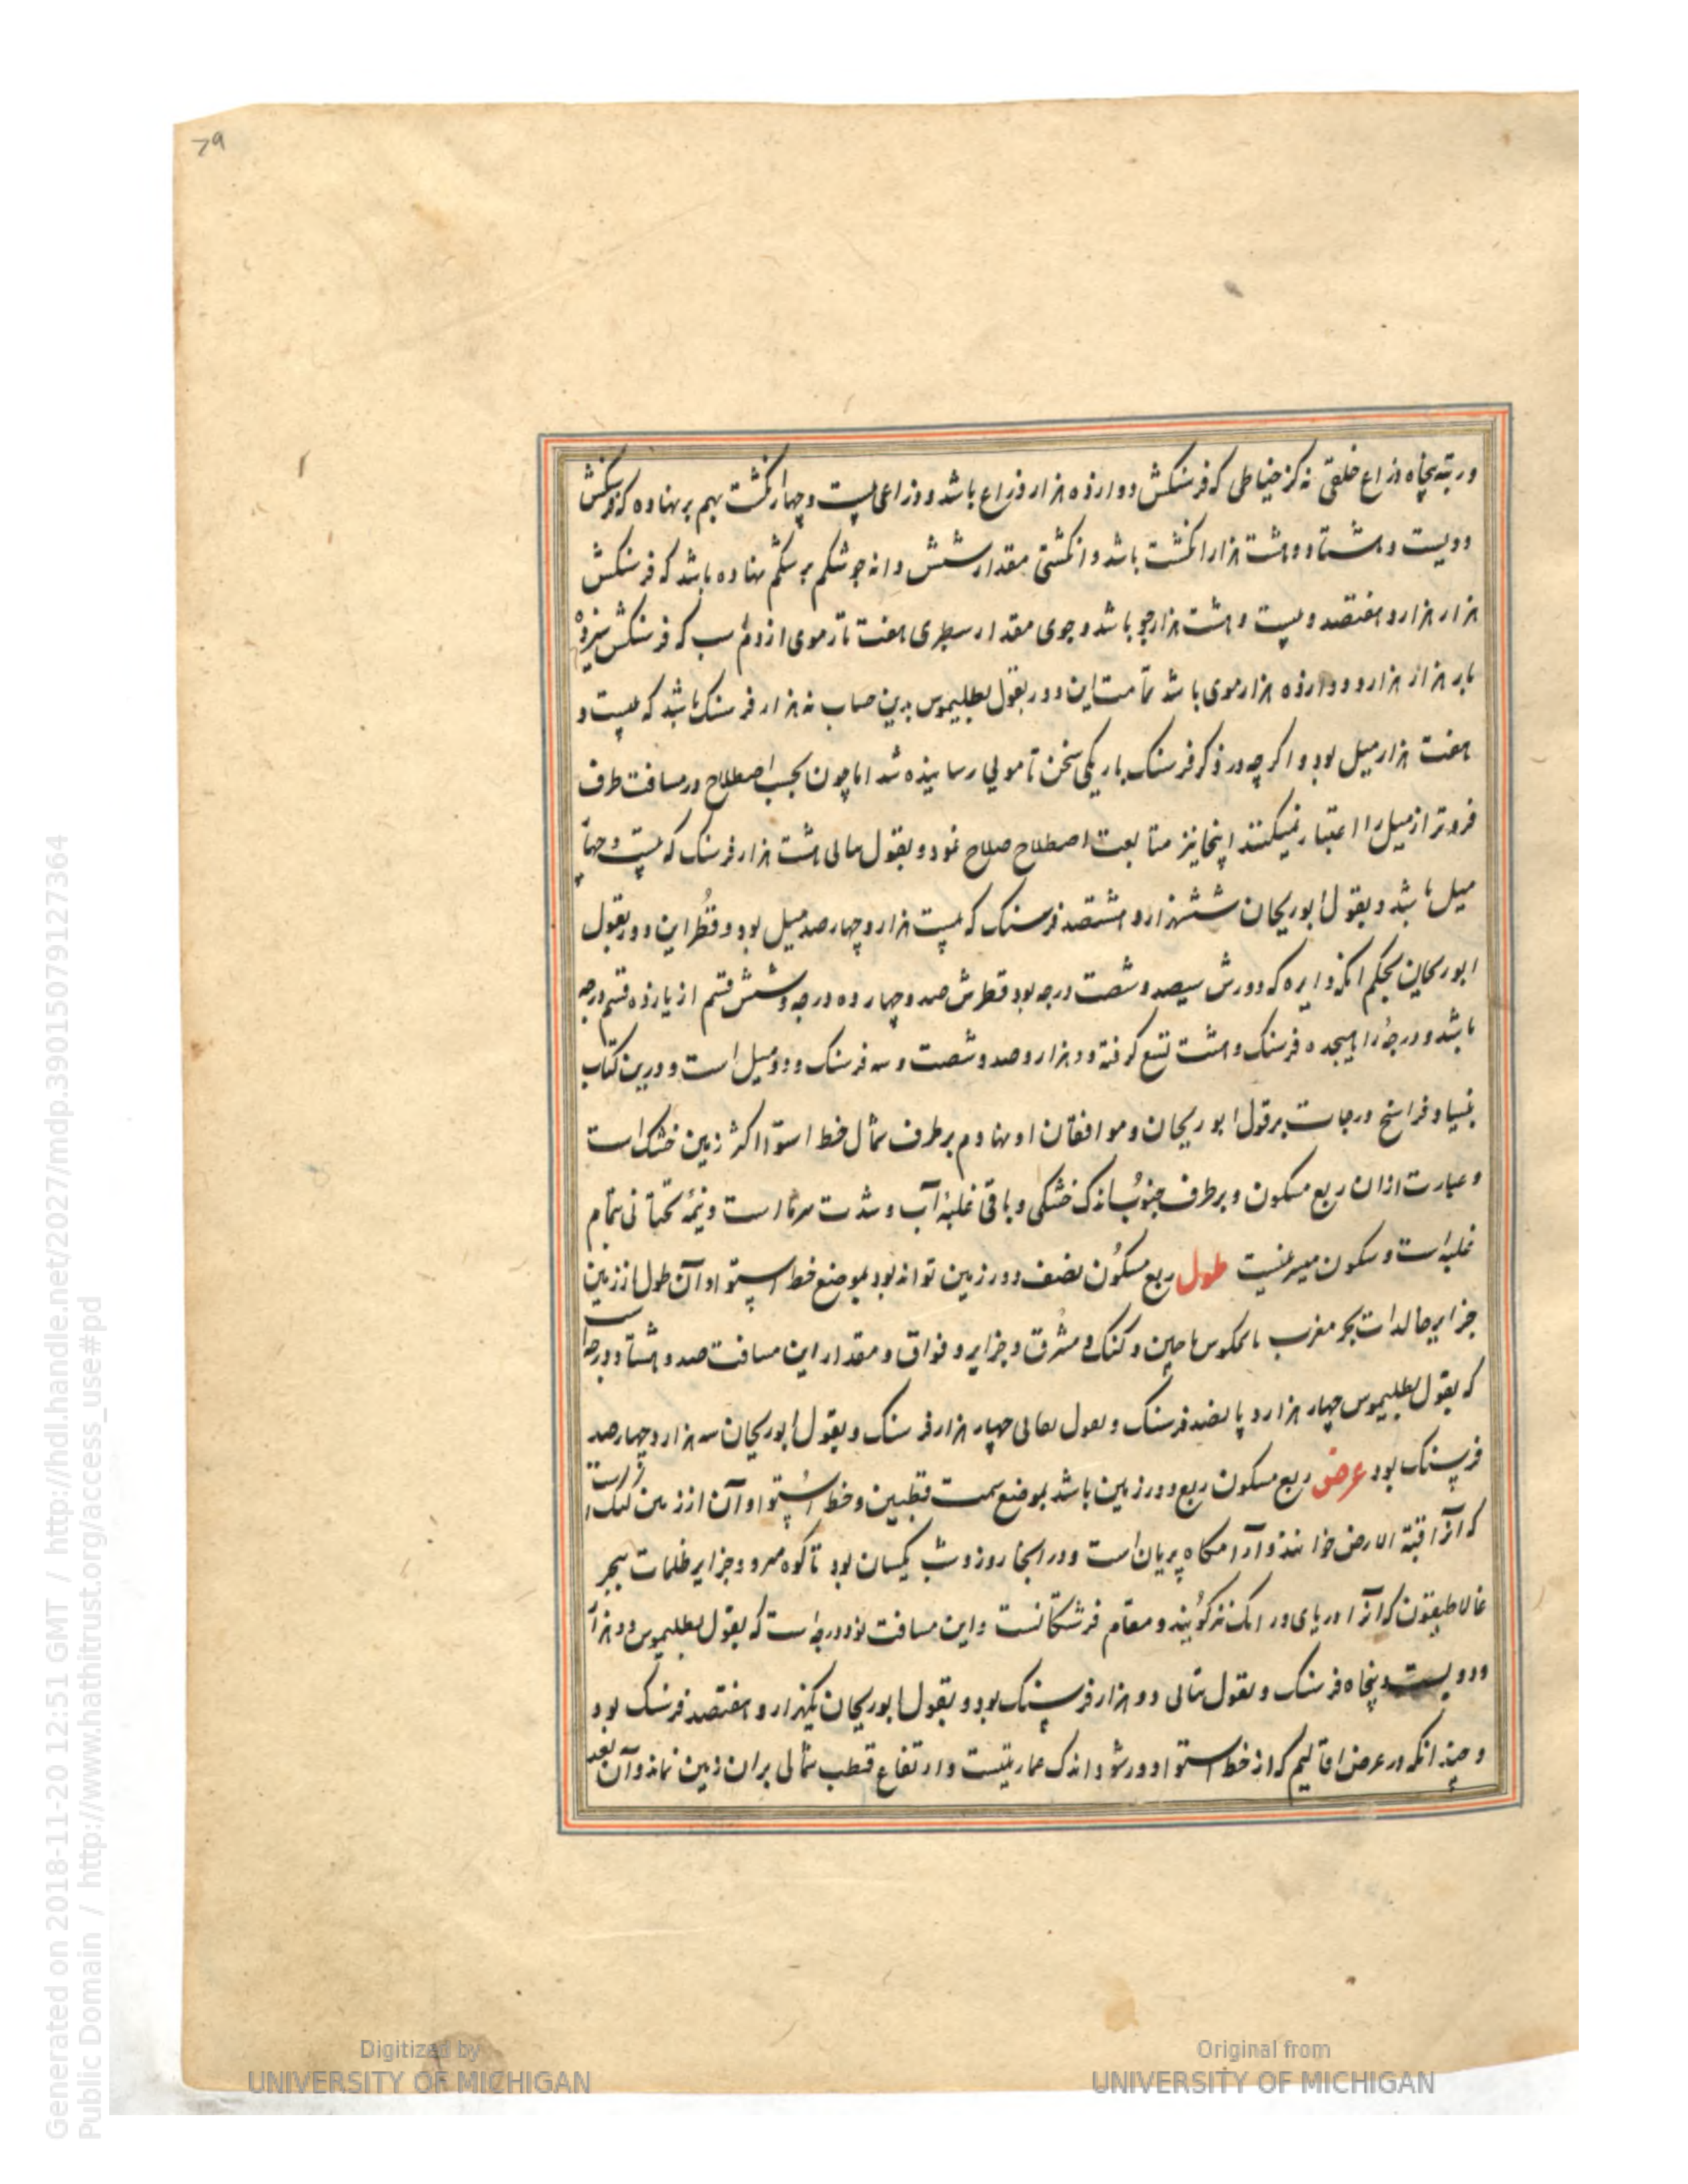 79
ورتبه پنجاه ذراع خلقی نه کز خیاطی که فرسنکش دوارذه هزار ذراع باشد و ذراعی بیست و چهار انکشت بهم برنهاده که فرسنکش
دویست و هشتاد و هشت هزار انکشت باشد و انکشتی مقدار شش دانه جو شکم بر شکم نهاده باشد که فرسنکش
هزار هزار و هفتصد و بیست و هشت هزار جو باشد و جوی مقدار سطبری هفت تار موی از دم اسب که فرسنکش سیزده
بار هزار هزار و دوارذه هزار موی باشد تمامت این دور بقول بطلیموس بدین حساب نه هزار فرسنک باشد که بیست و
هفت هزار میل بود و اکر چه در ذکر فرسنک باریکی سخن تا مویی رسانیذه شد اما چون بحسب اصطلاح در مسافت طرف
فروتر از میل را اعتبار نمیکنند اینجا نیز متابعت اصطلاح صلاح نمود و بقول هشت هزار فرسنک که بیست و چهار
میل باشد و بقول ابوریحان ششهزار و هشتصد فرسنک که بیست هزار و چهار صد میل بود و قطر این دور بقول
ابوریحان بحکم آنکه دایره که دورش سیصد و شصت درجه بود قطرش صد و چهارده درجه و شش قسم از یازذه قسم درجه
باشد و درجه را هیجده فرسنک و هشت تسع کرفته دو هزار و صد و شصت و سه فرسنک و دو میل است و درین کتاب
بنیاد فراسخ درجات بر قول ابوریحان و موافقان او نهادم بر طرف شمال خط استوا اکثر زمین خشک است
و عبارت ازان ربع مسکون و بر طرف جنوب اندک خشکی و باقی غلبه آب و شدت سرما است و نیمه تحتانی تمام
غلبه است و سکون میسر نیست طول ربع مسکون نصف دور زمین تواند بود بموضع خط استوا و آن طول از زمین
جزایر خالدات بحر مغرب تا ماچین و کنک دز مشرق و جزایر وقواق و مقدار این مسافت صد و هشتاد درجه است
که بقول بطلیموس چهار هزار و پانصد فرسنک و بقول چهار هزار فرسنک و بقول ابوریحان سه هزار و چهار صد
فرسنک بود عرض ربع مسکون ربع دور زمین باشد بموضع سمت قطبین و خط استوا و آن از زمین کنک دز است
که آنرا قبة الارض خوانند و آرامکاه پریان است و در آنجا روز و شب یکسان بود تا کوه و جزایر ظلمات ببحر
غالاطیقون که آنرا دریای ورانک نیز کویند و مقام فرشتکانست و این مسافت نود درجه است که بقول بطلیموس دو هزار
و دویست و پنجاه فرسنک و بقول دو هزار فرسنک بود و بقول ابوریحان یکهزار و هفتصد فرسنک بود
و چندانکه در عرض اقالیم که از خط استوا دور شود اندک عمارتیست و ارتفاع قطب شمالی بران زمین نماند و آن بعد
Generated on 2018-11-20 12:51 GMT / http://hdl.handle.net/2027/mdp.39015079127364
Public Domain / http://www.hathitrust.org/access_use#pd
Digitized by
UNIVERSITY OF MICHIGAN
Original from
UNIVERSITY OF MICHIGAN